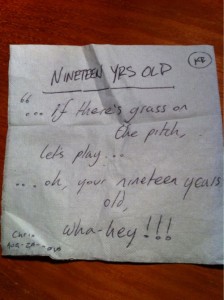 NINETEEN YRS OLD
"... If there's grass on
the pitch,
let's play...
... oh, your nineteen years
old,
wha-hey!!!